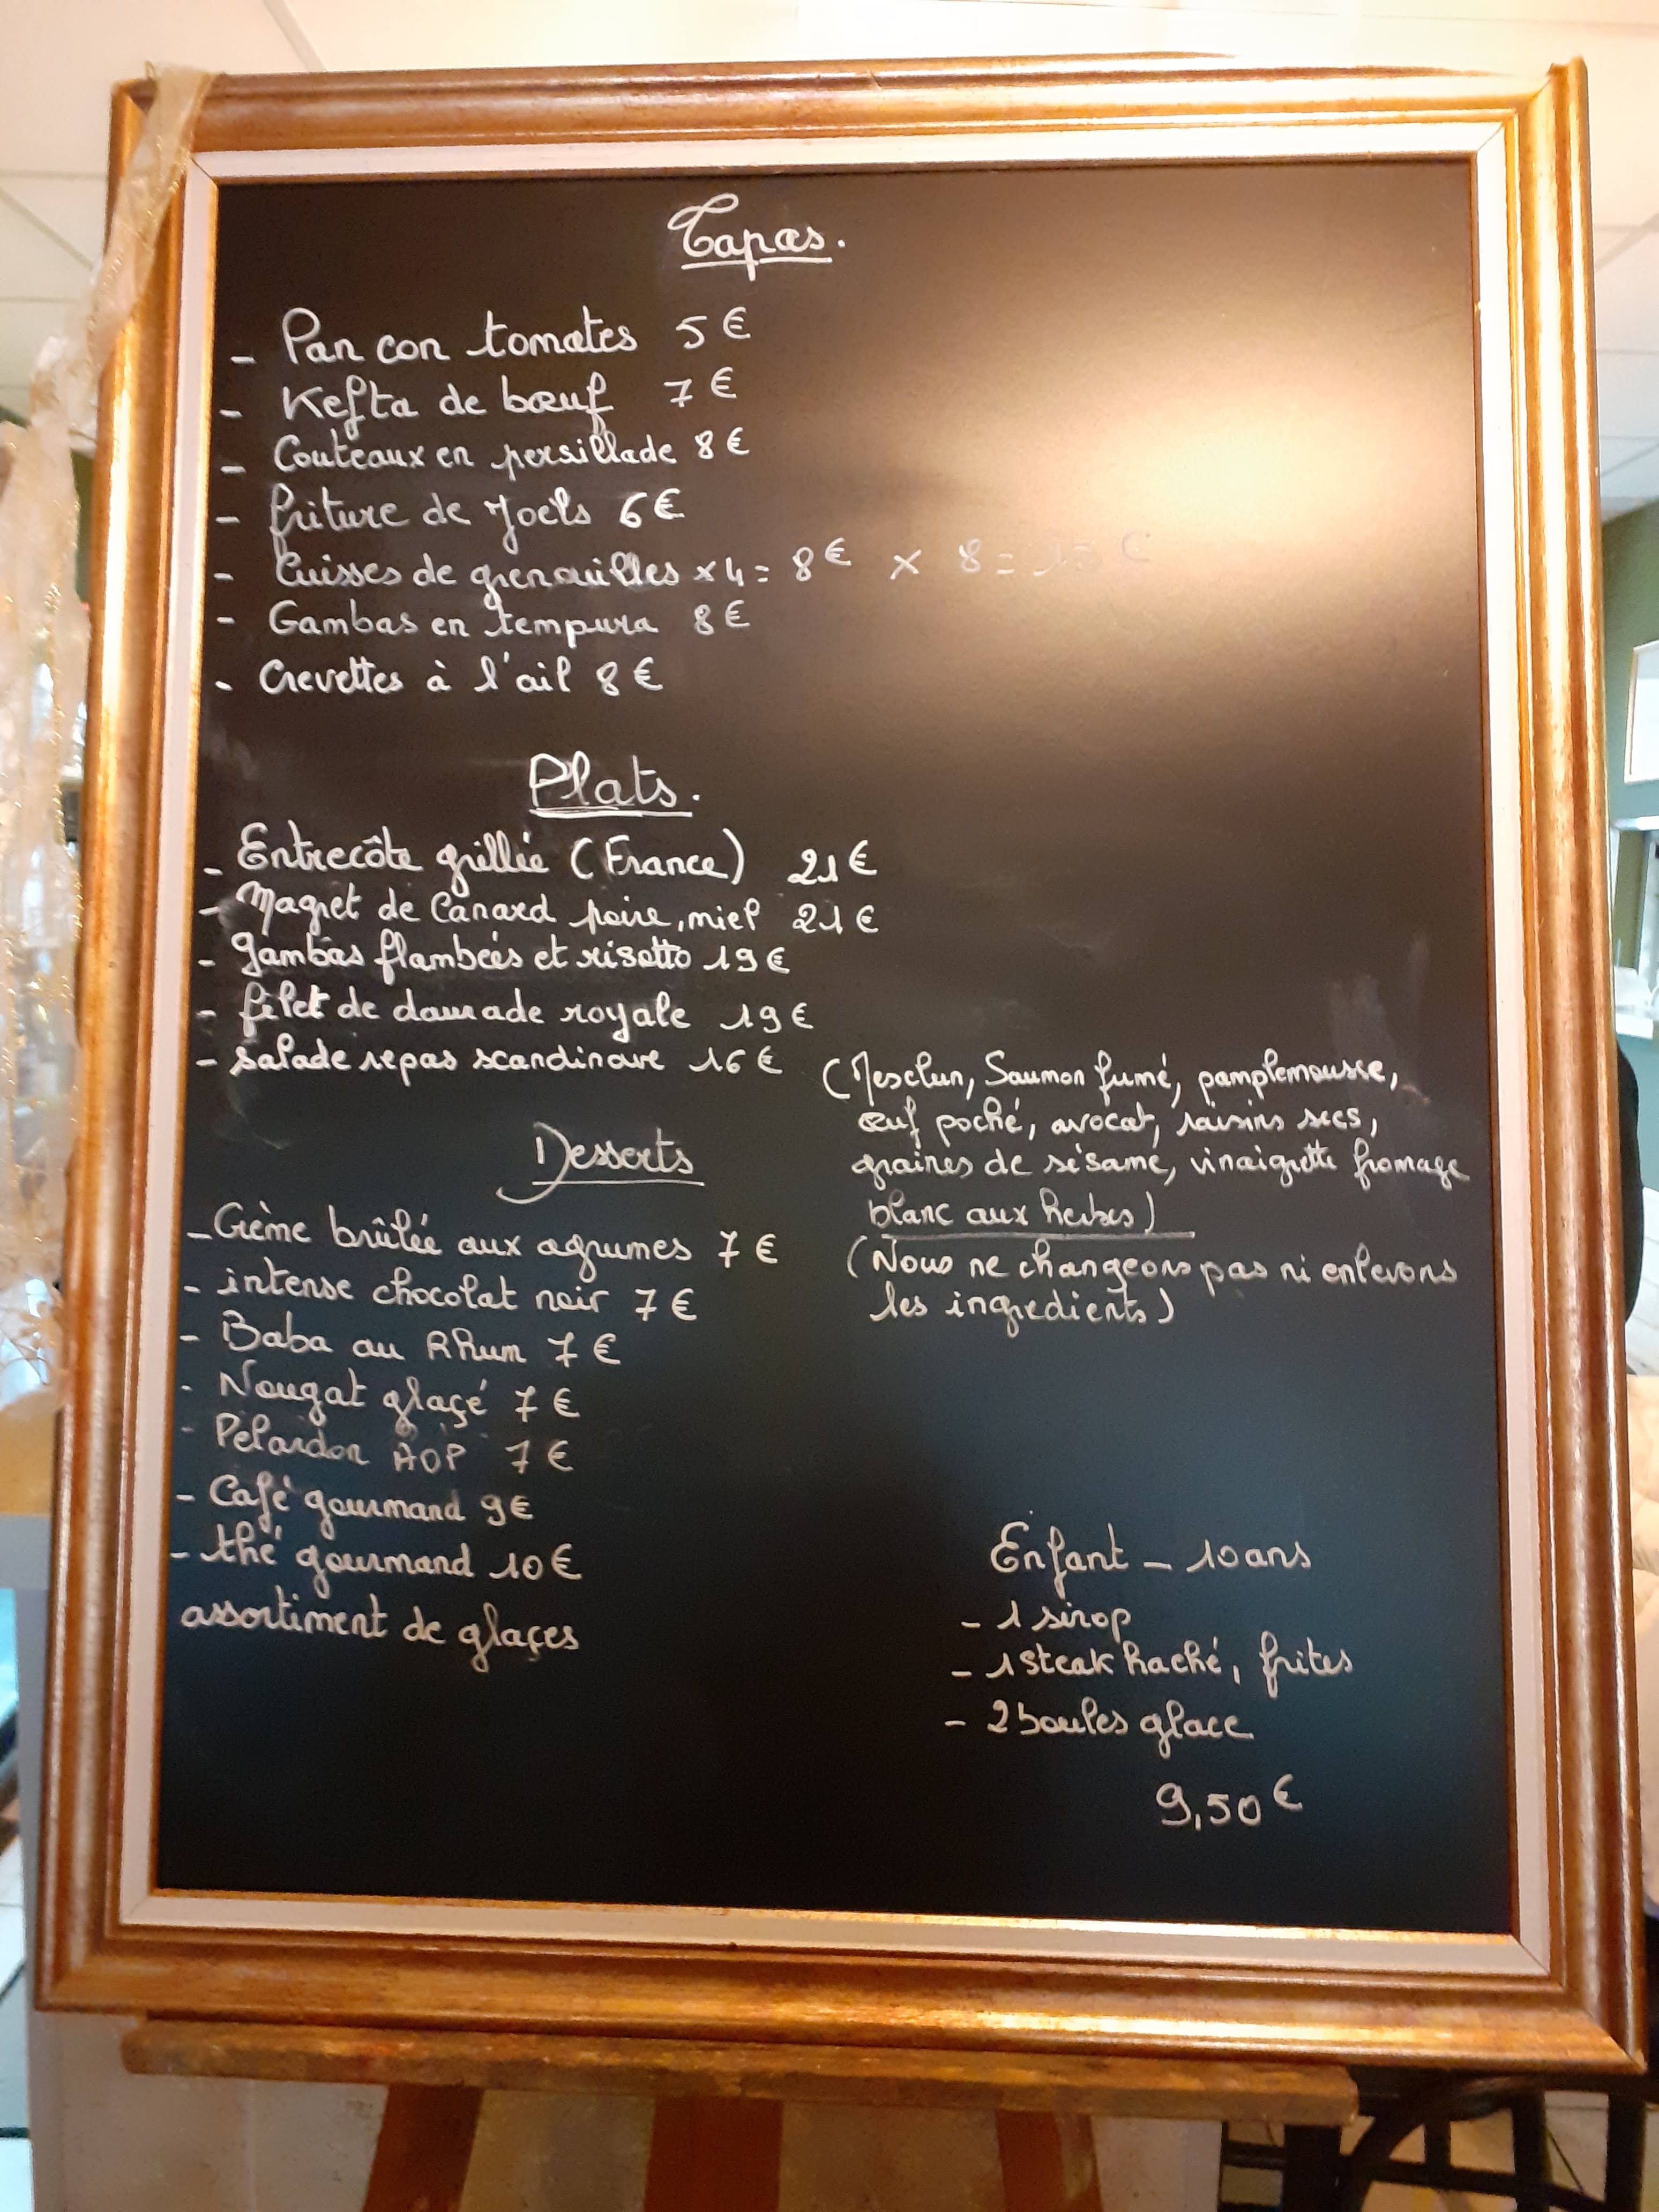 Tapas.
- Pan con tomates 5€
- Kefta de bœuf 7€
- Couteaux en persillade 8€
- friture de Joëls 6€
- Cuisses de grenouilles x4 = 8€ x 8 = €
- Gambas en tempura 8€
- Crevettes à l'ail 8€
Plats.
- Entrecôte grillée (France) 21€
- Magret de Canard poire, miel 21€
- Gambas flambées et risotto 19€
- filet de daurade royale 19€
- salade repas scandinave 16€
(Mesclun, Saumon fumé, pamplemousse,
œuf poché, avocat, raisins secs,
graines de sésame, vinaigrette fromage
blanc aux herbes)
(Nous ne changeons pas ni enlevons
les ingrédients)
Desserts
- Crème brûlée aux agrumes 7€
- intense chocolat noir 7€
- Baba au Rhum 7€
- Nougat glaçé 7€
- Pélardon AOP 7€
- Café gourmand 9€
- thé gourmand 10€
assortiment de glaçes
Enfant - 10 ans
- 1 sirop
- 1 steak haché, frites
- 2 boules glace
9,50€